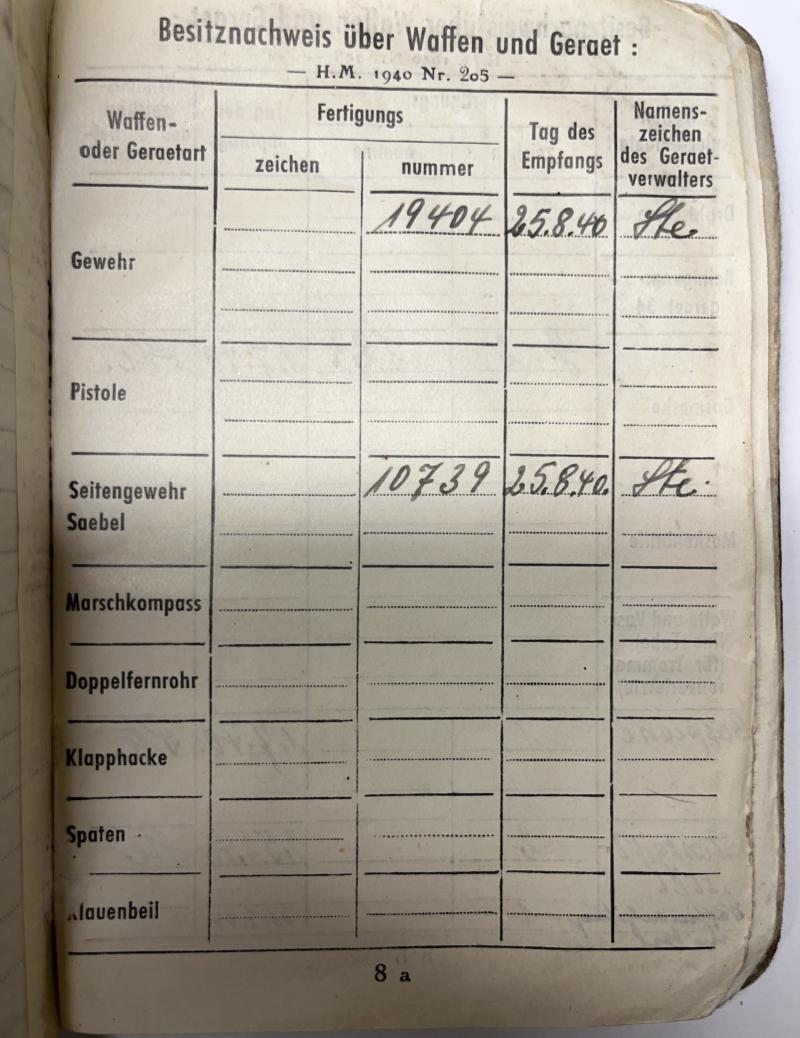 Besitznachweis über Waffen und Geraet :
— H.M. 1940 Nr. 205 —
Waffen- oder Geraetart
Fertigungs
zeichen
nummer
Tag des Empfangs
Namens- zeichen des Geraet- verwalters
Gewehr 19404 25.8.40 Ste.
Pistole
Seitengewehr 10739 25.8.40. Ste.
Saebel
Marschkompass
Doppelfernrohr
Klapphacke
Spaten
Klauenbeil
8 a